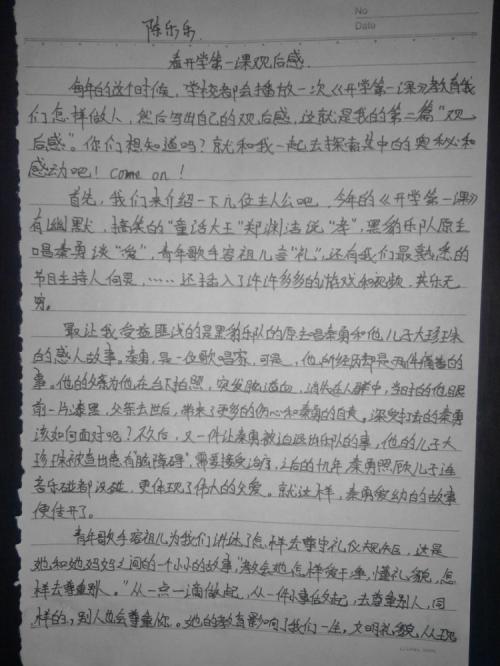 No
Date
陈乐乐
看开学第一课观后感.
每年的这个时候，学校都会播放一次《开学第一课》教育我
们怎样做人，然后写出自己的观后感，这就是我的第二篇“观
后感”。你们想知道吗？就和我一起去探索其中的奥秘和
感动吧！Come on！
首先，我们来介绍一下几位主人公吧，今年的《开学第一课》
有幽默，搞笑的“童话大王”郑渊洁说“孝”，黑豹乐队原主
唱秦勇谈“爱”，青年歌手容祖儿言“礼”，还有我们最熟悉的
节目主持人何炅，……还插入了许许多多的游戏和视频，其乐无
穷。
最让我受益匪浅的是黑豹乐队的原主唱秦勇和他儿子大珍珠
的感人故事。秦勇，是一位歌唱家，可是，他所经历却是两件痛苦的
事。他的父亲为他在台下拍照，突发脑溢血，消失在人群中，当时的他眼
前一片漆黑，父亲去世后，带来了更多的伤心和秦勇的自责。深受打击的秦勇
该如何面对呢？不久后，又一件让秦勇被迫退出乐队的事，他的儿子大
珍珠被查出患有“脑障碍”，需要接受治疗，之后的九年秦勇照顾儿子连
音乐碰都没碰，更体现了伟大的父爱。就这样，秦勇爱幼的故事
便传开了。
青年歌手容祖儿为我们讲述了怎样去遵守礼仪规矩，这是
她和她妈妈之间的一个小小的故事，“教会她怎样爱干净，懂礼貌，怎
样去尊重别人。”从一点一滴做起，从一件小事做起，去尊重别人，同
样的，别人也会尊重你。她的教育影响了我们一生，文明礼貌，从现